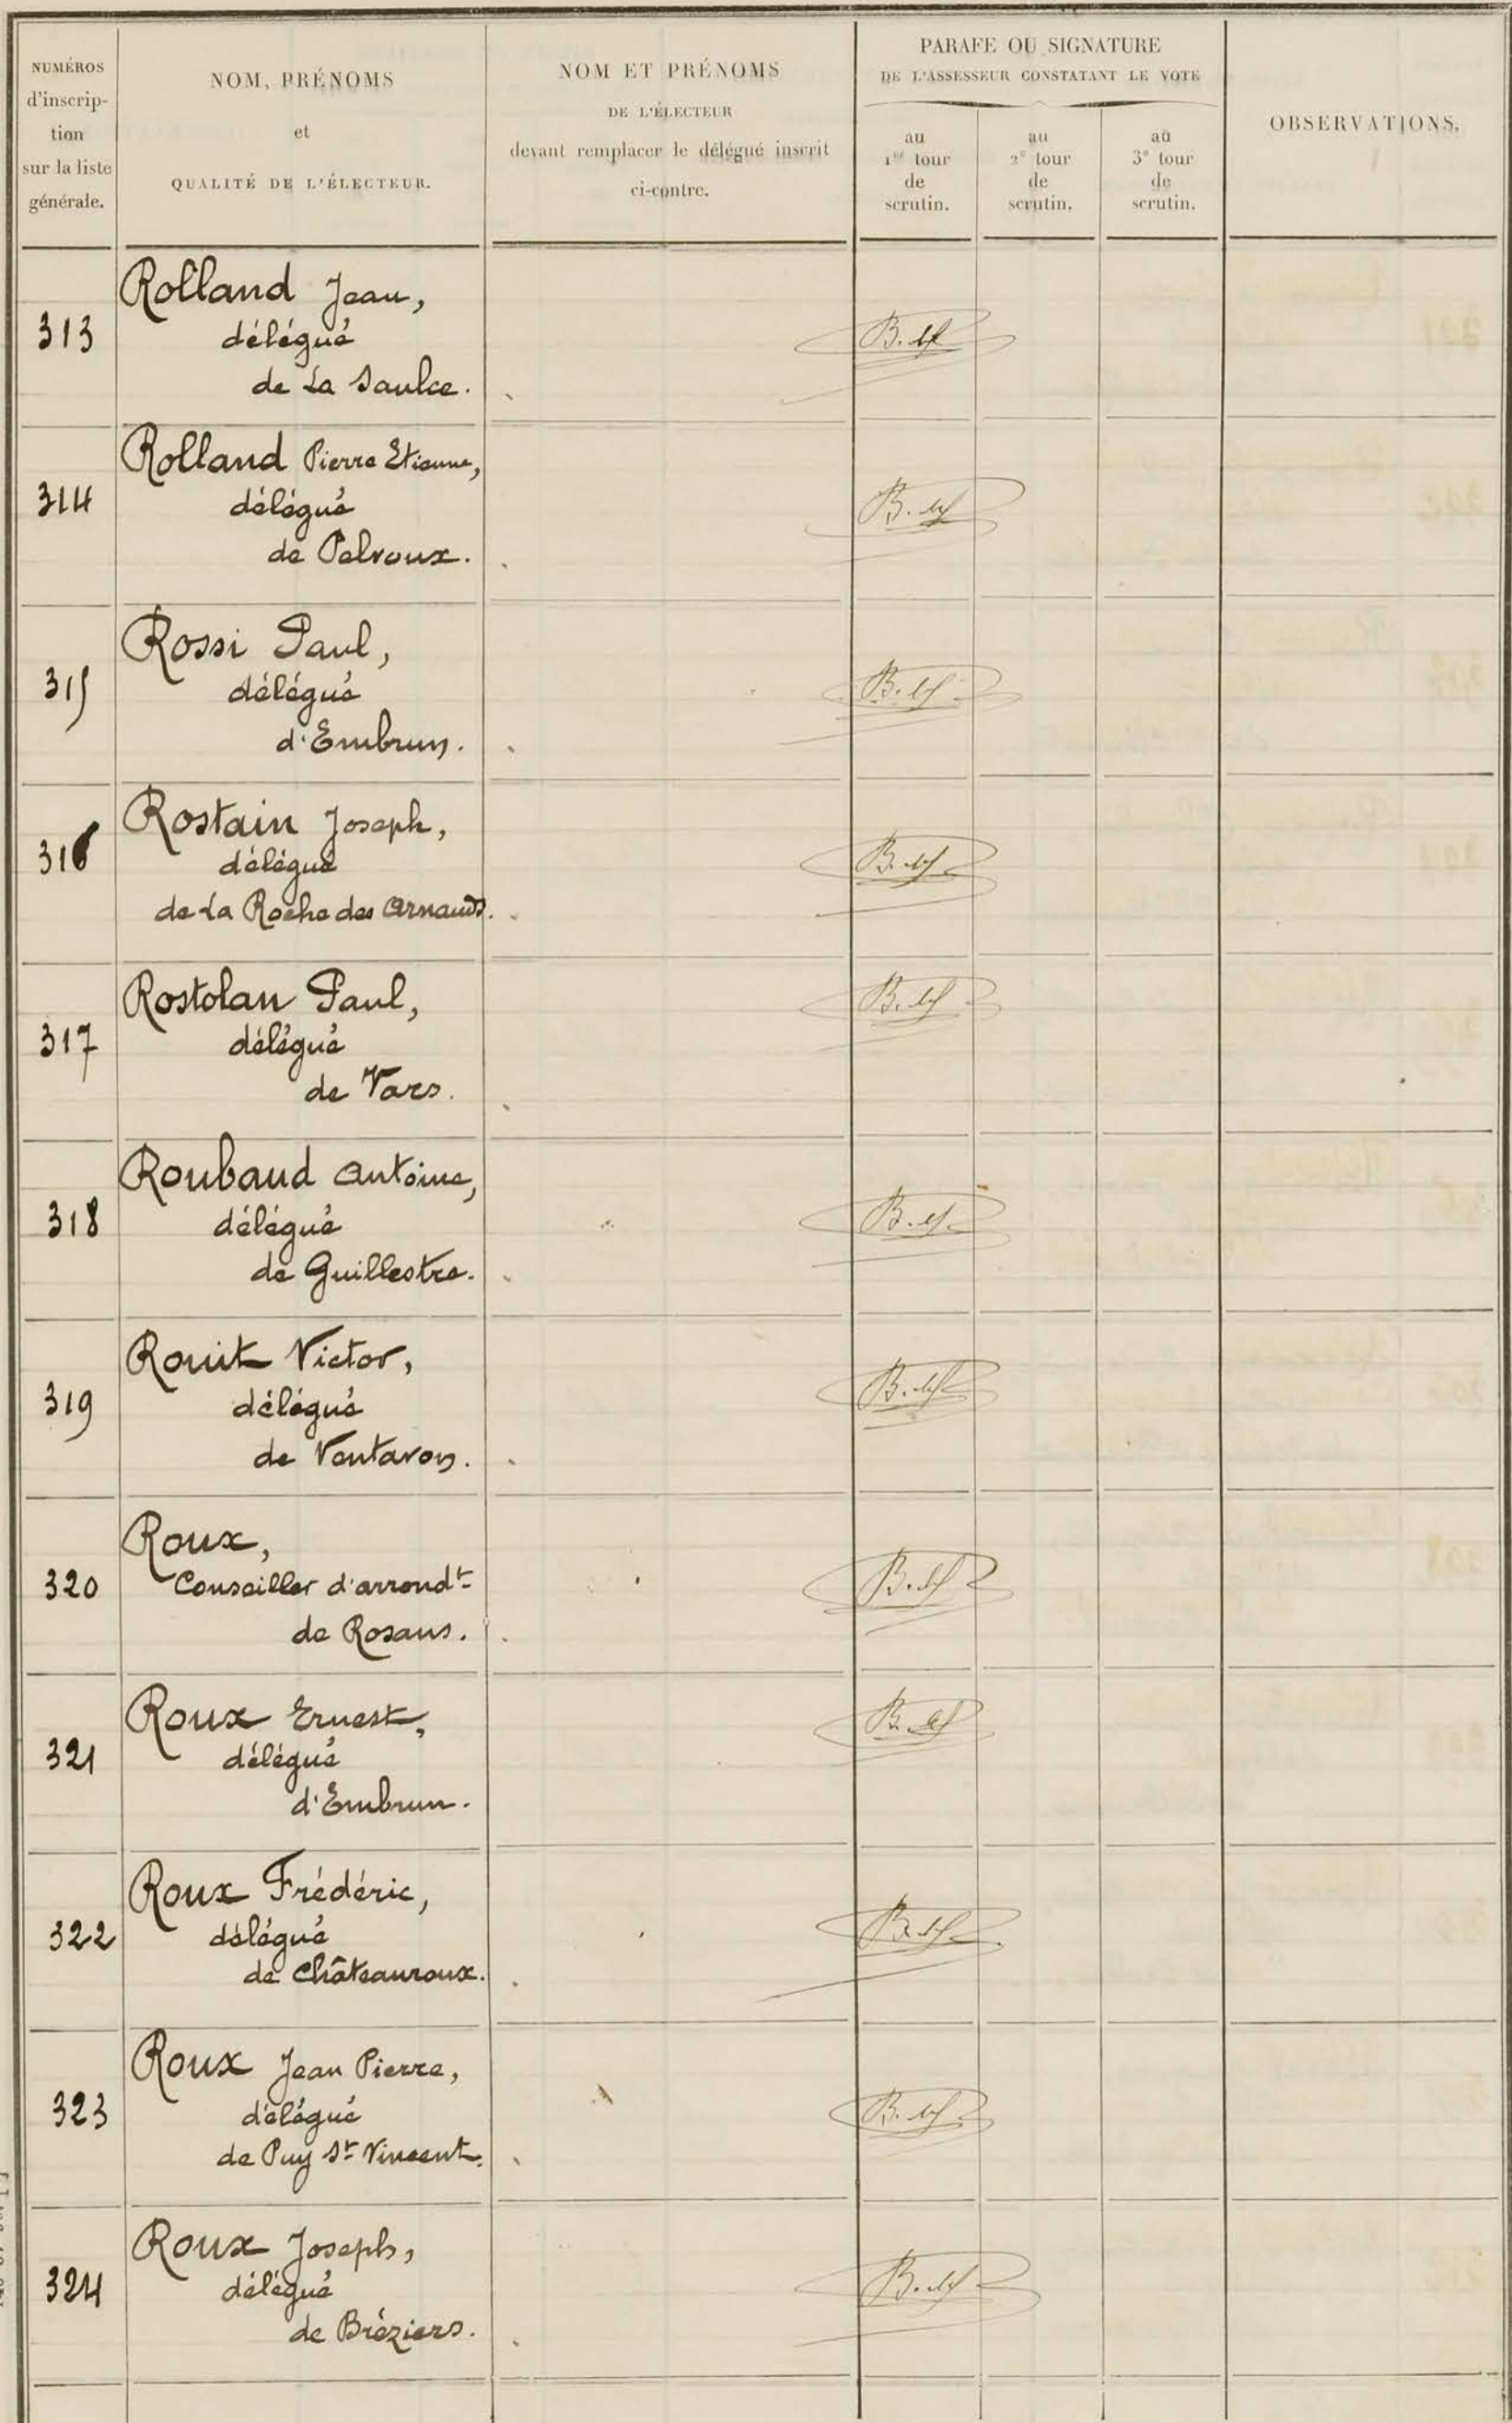 NUMÉROS
d'inscrip-
tion
sur la liste
générale.
NOM, PRÉNOMS
et
QUALITÉ DE L'ÉLECTEUR.
NOM ET PRÉNOMS
DE L'ÉLECTEUR
devant remplacer le délégué inscrit
ci-contre.
PARAFE OU SIGNATURE
DE L'ASSESSEUR CONSTATANT LE VOTE
au
1er tour
de
scrutin.
au
2e tour
de
scrutin.
au
3e tour
de
scrutin.
OBSERVATIONS.
313
Rolland Jean,
délégué
de La Saulce.
314
Rolland Pierre Etienne,
délégué
de Pelvoux.
315
Rossi Paul,
délégué
d'Embrun.
316
Rostain Joseph,
délégué
de La Roche des Arnauds.
317
Rostolan Paul,
délégué
de Vars.
318
Roubaud Antoine,
délégué
de Guillestre.
319
Rouit Victor,
délégué
de Ventavon.
320
Roux,
Conseiller d'arrondt
de Rosans.
321
Roux Ernest,
délégué
d'Embrun.
322
Roux Frédéric,
délégué
de Châteauroux.
323
Roux Jean Pierre,
délégué
de Puy St Vincent.
324
Roux Joseph,
délégué
de Bréziers.